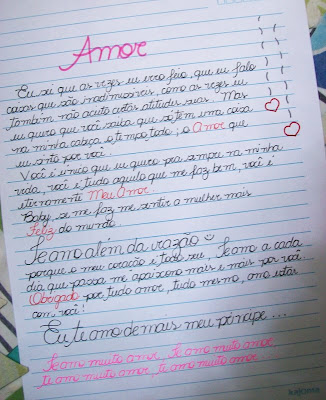 Amor
Eu sei que as vezes eu erro feio, que eu falo
coisas que são inadimissíveis, como as vezes eu
também não aceito certas atitudes suas. Mas
eu quero que você saiba que só tem uma coisa
na minha cabeça o tempo todo; o Amor que
eu sinto por você.
Você é único que eu quero pra sempre na minha
vida, você é tudo aquilo que me faz bem, você é
eternamente Meu Amor.
Baby, se me faz me sentir a mulher mais
Feliz do mundo
Te amo além da razão
porque o meu coração é todo seu, Te amo a cada
dia que passa me apaixono mais e mais por você
Obrigado por tudo amor, tudo mesmo, amo estar
com você!
Eu te amo demais meu príncipe...
Te amo muito amor, Te amo muito amor
te amo muito amor, te amo muito amor